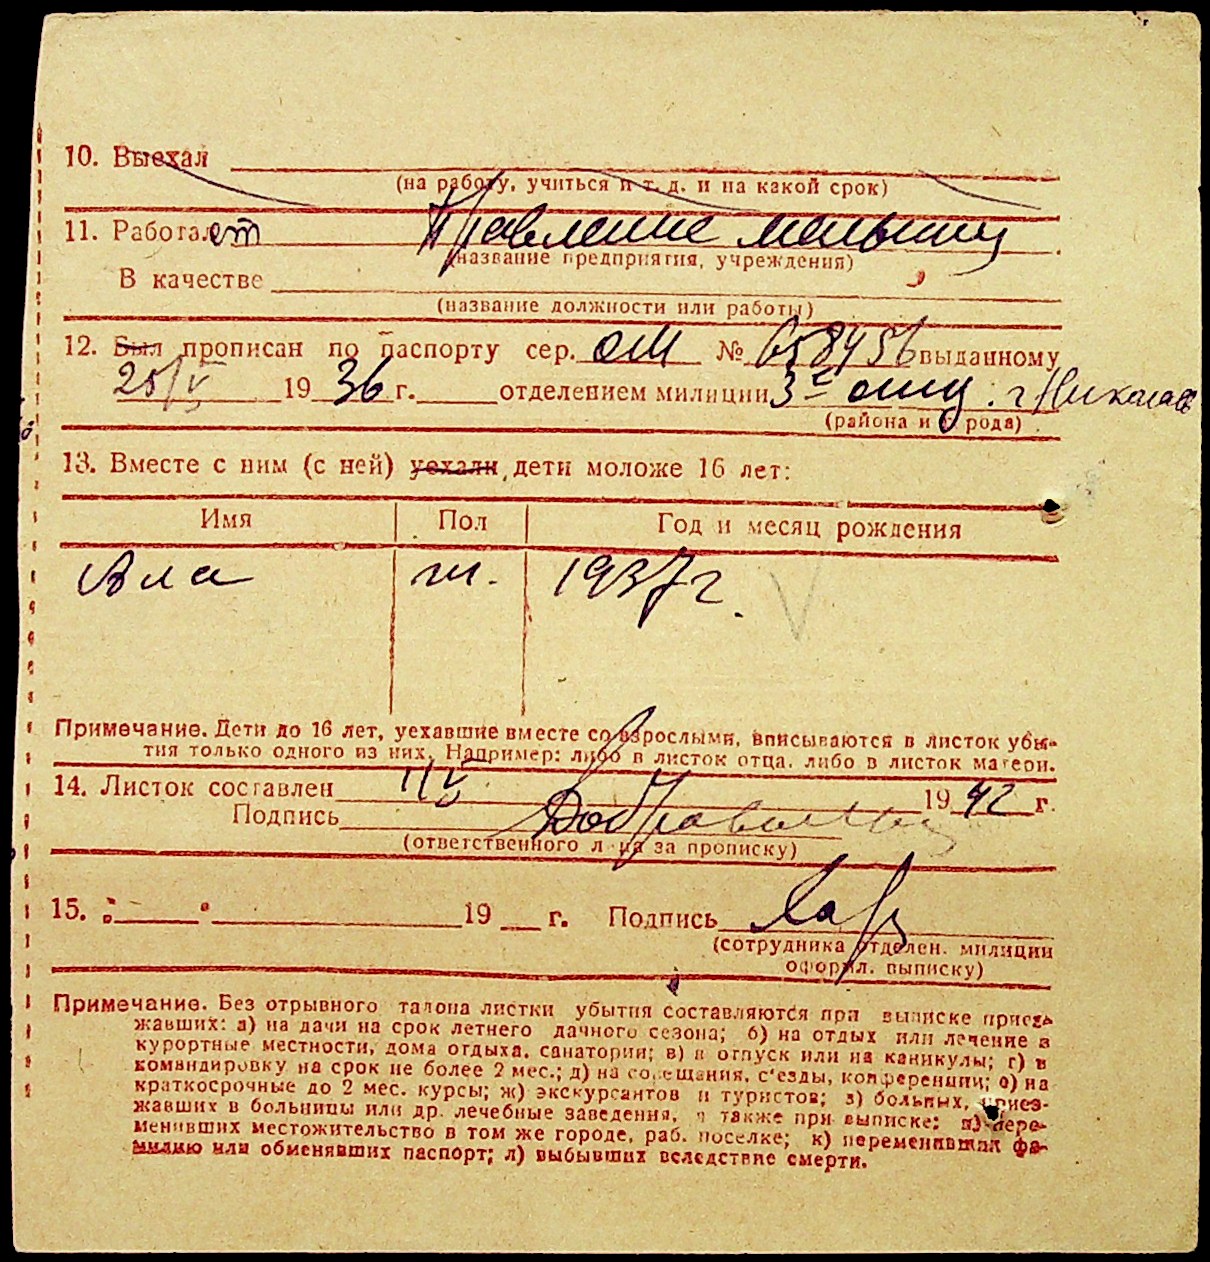 10. Выехал
(на работу, учиться и т. д. и на какой срок)
11. Работает Правление мельниц
(название предприятия, учреждения)
В качестве
(название должности или работы)
12. Был прописан по паспорту сер. ОМ № 658456 выданному
25/V 1936 г. отделением милиции 3 г. Николаев
(района и города)
13. Вместе с ним (с ней) уехали дети моложе 16 лет:
Имя Пол Год и месяц рождения
Ала ж. 1937 г.
Примечание. Дети до 16 лет, уехавшие вместе со взрослыми, вписываются в листок убы-
тия только одного из них. Например: либо в листок отца, либо в листок матери.
14. Листок составлен 1/V 1942 г.
Подпись
(ответственного лица за прописку)
15. " " 19 г. Подпись
(сотрудника отделен. милиции
оформл. выписку)
Примечание. Без отрывного талона листки убытия составляются при выписке приез-
жавших: а) на дачи на срок летнего дачного сезона; б) на отдых или лечение в
курортные местности, дома отдыха, санатории; в) в отпуск или на каникулы; г) в
командировку на срок не более 2 мес.; д) на совещания, с'езды, конференции; е) на
краткосрочные до 2 мес. курсы; ж) экскурсантов и туристов; з) больных, приез-
жавших в больницы или др. лечебные заведения, а также при выписке: и) пере-
менивших местожительство в том же городе, раб. поселке; к) переменивших фа-
милию или обменявших паспорт; л) выбывших вследствие смерти.